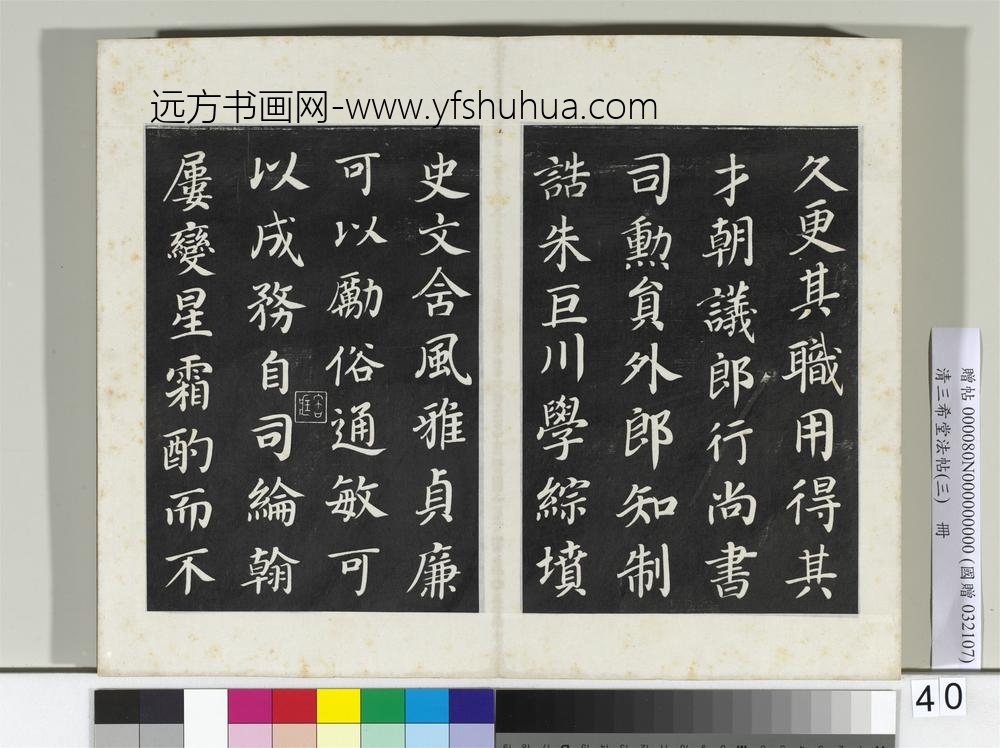 远方书画网-www.yfshuhua.com
久更其職用得其
才朝議郎行尚書
司勳員外郎知制
誥朱巨川學綜墳
史文含風雅貞廉
可以勵俗通敏可
以成務自司綸翰
屢變星霜酌而不
贈帖 000080N000000000 (國贈 032107)
清三希堂法帖(三) 冊
40